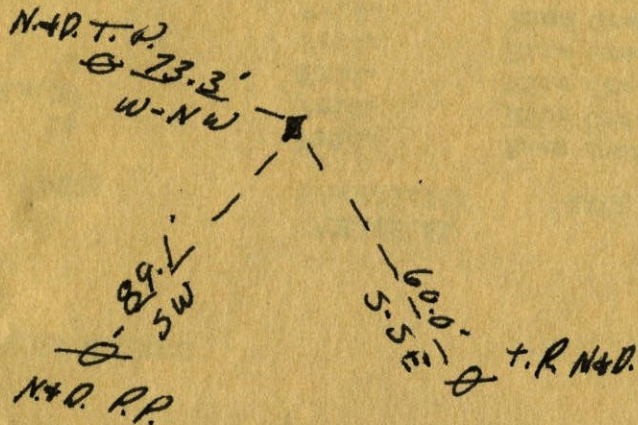 N.&D. T.P.
73.3'
W-NW
89.1'
SW
N.&D. P.P.
60.0'
S-SE
T.P. N&D.